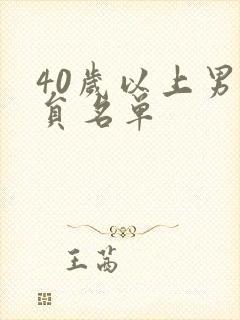 40歲以上男
員名單
王茜